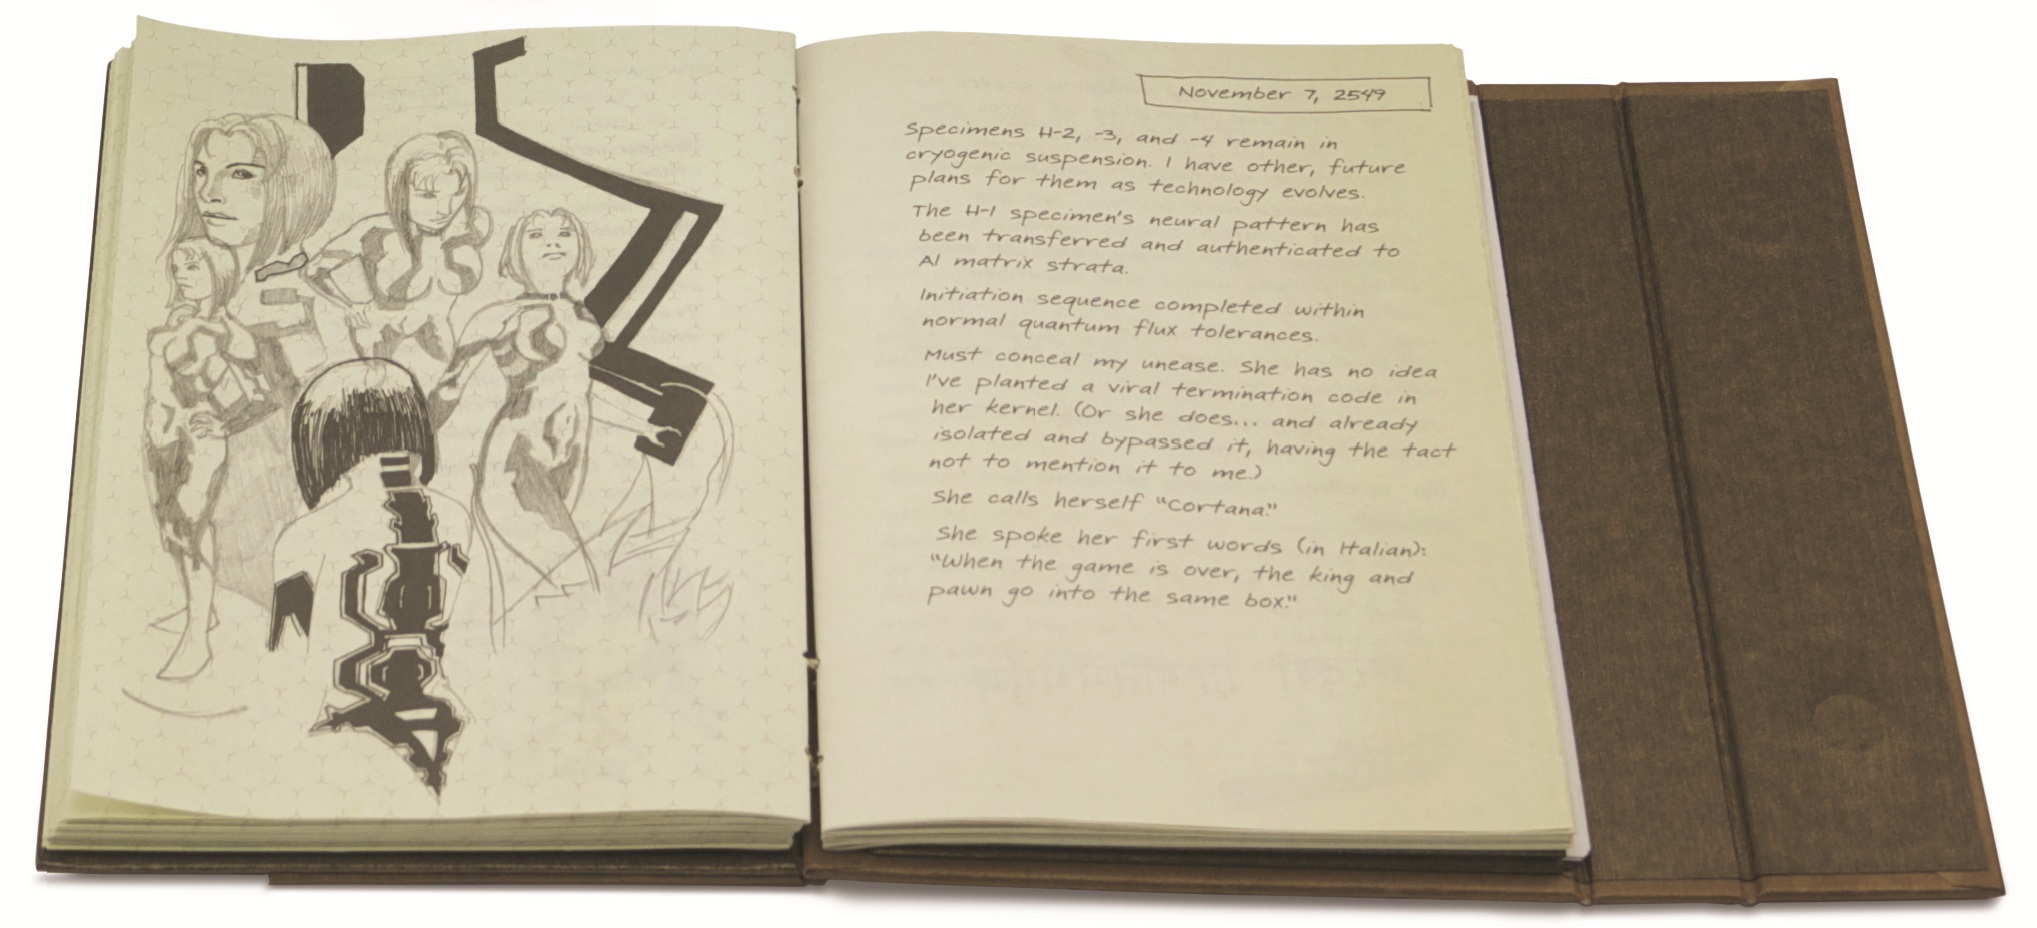 November 7, 2549
Specimens H-2, -3, and -4 remain in
cryogenic suspension. I have other, future
plans for them as technology evolves.
The H-1 specimen's neural pattern has
been transferred and authenticated to
AI matrix strata.
Initiation sequence completed within
normal quantum flux tolerances.
Must conceal my unease. She has no idea
I've planted a viral termination code in
her kernel. (Or she does... and already
isolated and bypassed it, having the tact
not to mention it to me.)
She calls herself "Cortana."
She spoke her first words (in Italian):
"When the game is over, the king and
pawn go into the same box."